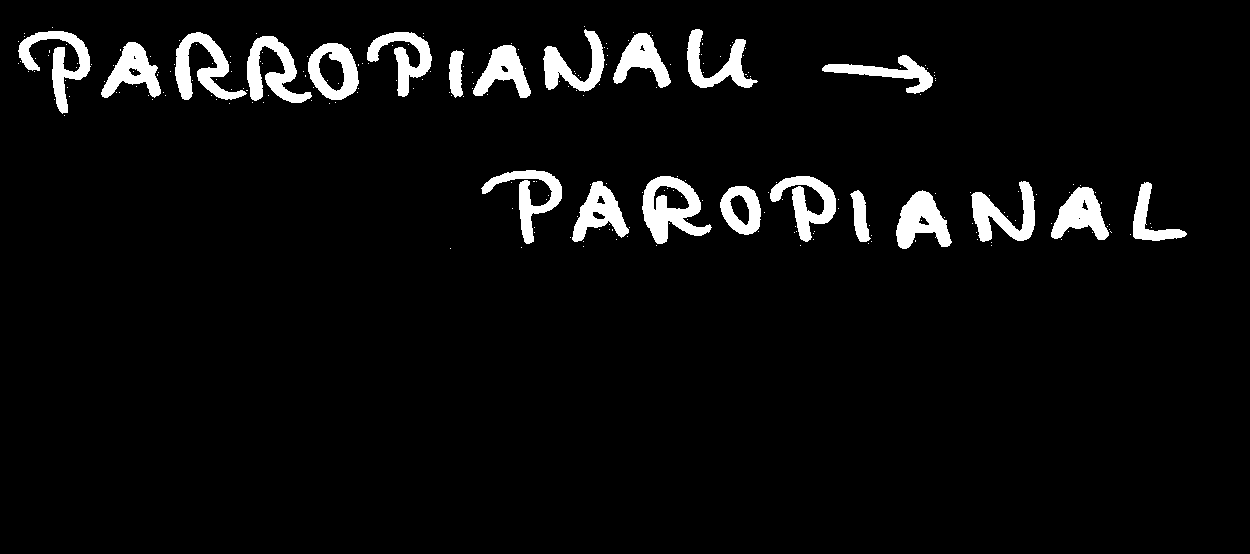 PARROPIANAU →
PAROPIANAL